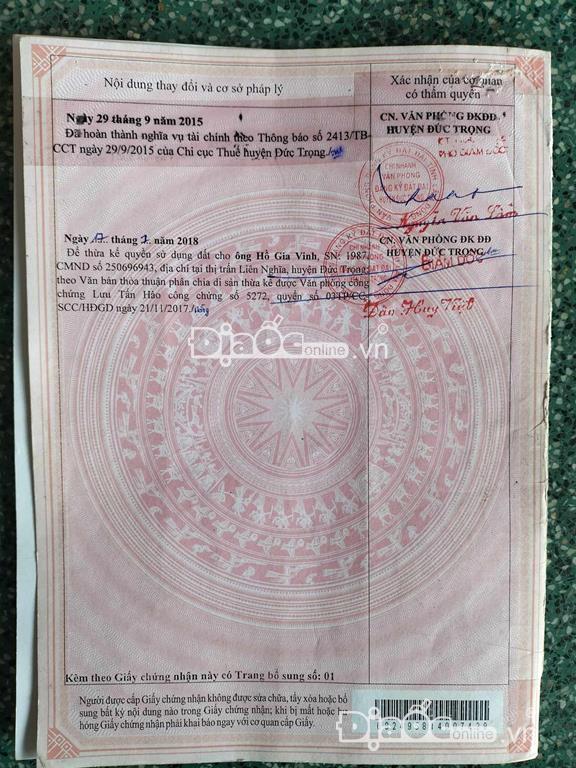 Nội dung thay đổi và cơ sở pháp lý
Xác nhận của cơ quan
có thẩm quyền
Ngày 29 tháng 9 năm 2015
Đã hoàn thành nghĩa vụ tài chính theo Thông báo số 2413/TB-
CCT ngày 29/9/2015 của Chi cục Thuế huyện Đức Trọng./
CN. VĂN PHÒNG ĐKĐĐ
HUYỆN ĐỨC TRỌNG
PHÓ GIÁM ĐỐC
CHI NHÁNH
VĂN PHÒNG
ĐĂNG KÝ ĐẤT ĐAI
Nguyễn Văn
Ngày 17 tháng 1 năm 2018
Để thừa kế quyền sử dụng đất cho ông Hồ Gia Vinh, SN: 1987,
CMND số 250696943, địa chỉ tại thị trấn Liên Nghĩa, huyện Đức Trọng
theo Văn bản thỏa thuận phân chia di sản thừa kế được Văn phòng công
chứng Lưu Tấn Hảo công chứng số 5272, quyển số 03TP/CC-
SCC/HĐGD ngày 21/11/2017./
CN. VĂN PHÒNG ĐK ĐĐ
HUYỆN ĐỨC TRỌNG
GIÁM ĐỐC
Huy
ĐịaỐc online.vn
Kèm theo Giấy chứng nhận này có Trang bổ sung số: 01
Người được cấp Giấy chứng nhận không được sửa chữa, tẩy xóa hoặc bổ
sung bất kỳ nội dung nào trong Giấy chứng nhận; khi bị mất hoặc hư
hỏng Giấy chứng nhận phải khai báo ngay với cơ quan cấp Giấy.
ĐịaỐc online.vn